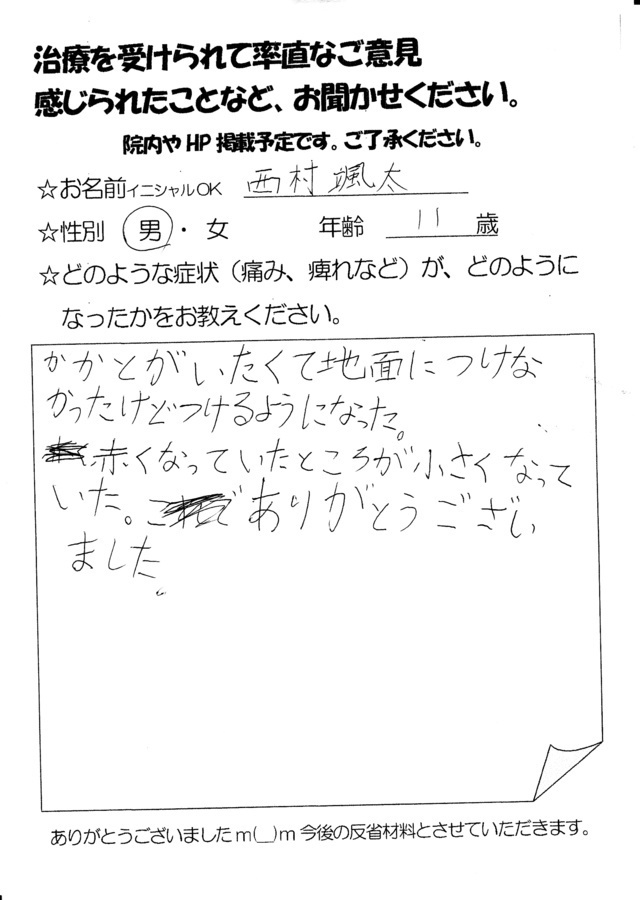 治療を受けられて率直なご意見
感じられたことなど、お聞かせください。
院内やHP掲載予定です。ご了承ください。
☆お名前イニシャルOK 西村颯太
☆性別 男・女 年齢 11 歳
☆どのような症状（痛み、痺れなど）が、どのように
なったかをお教えください。
かかとがいたくて地面につけな
かったけどつけるようになった。
赤くなっていたところが小さくなって
いた。ありがとうござい
ました。
ありがとうございましたm(__)m今後の反省材料とさせていただきます。